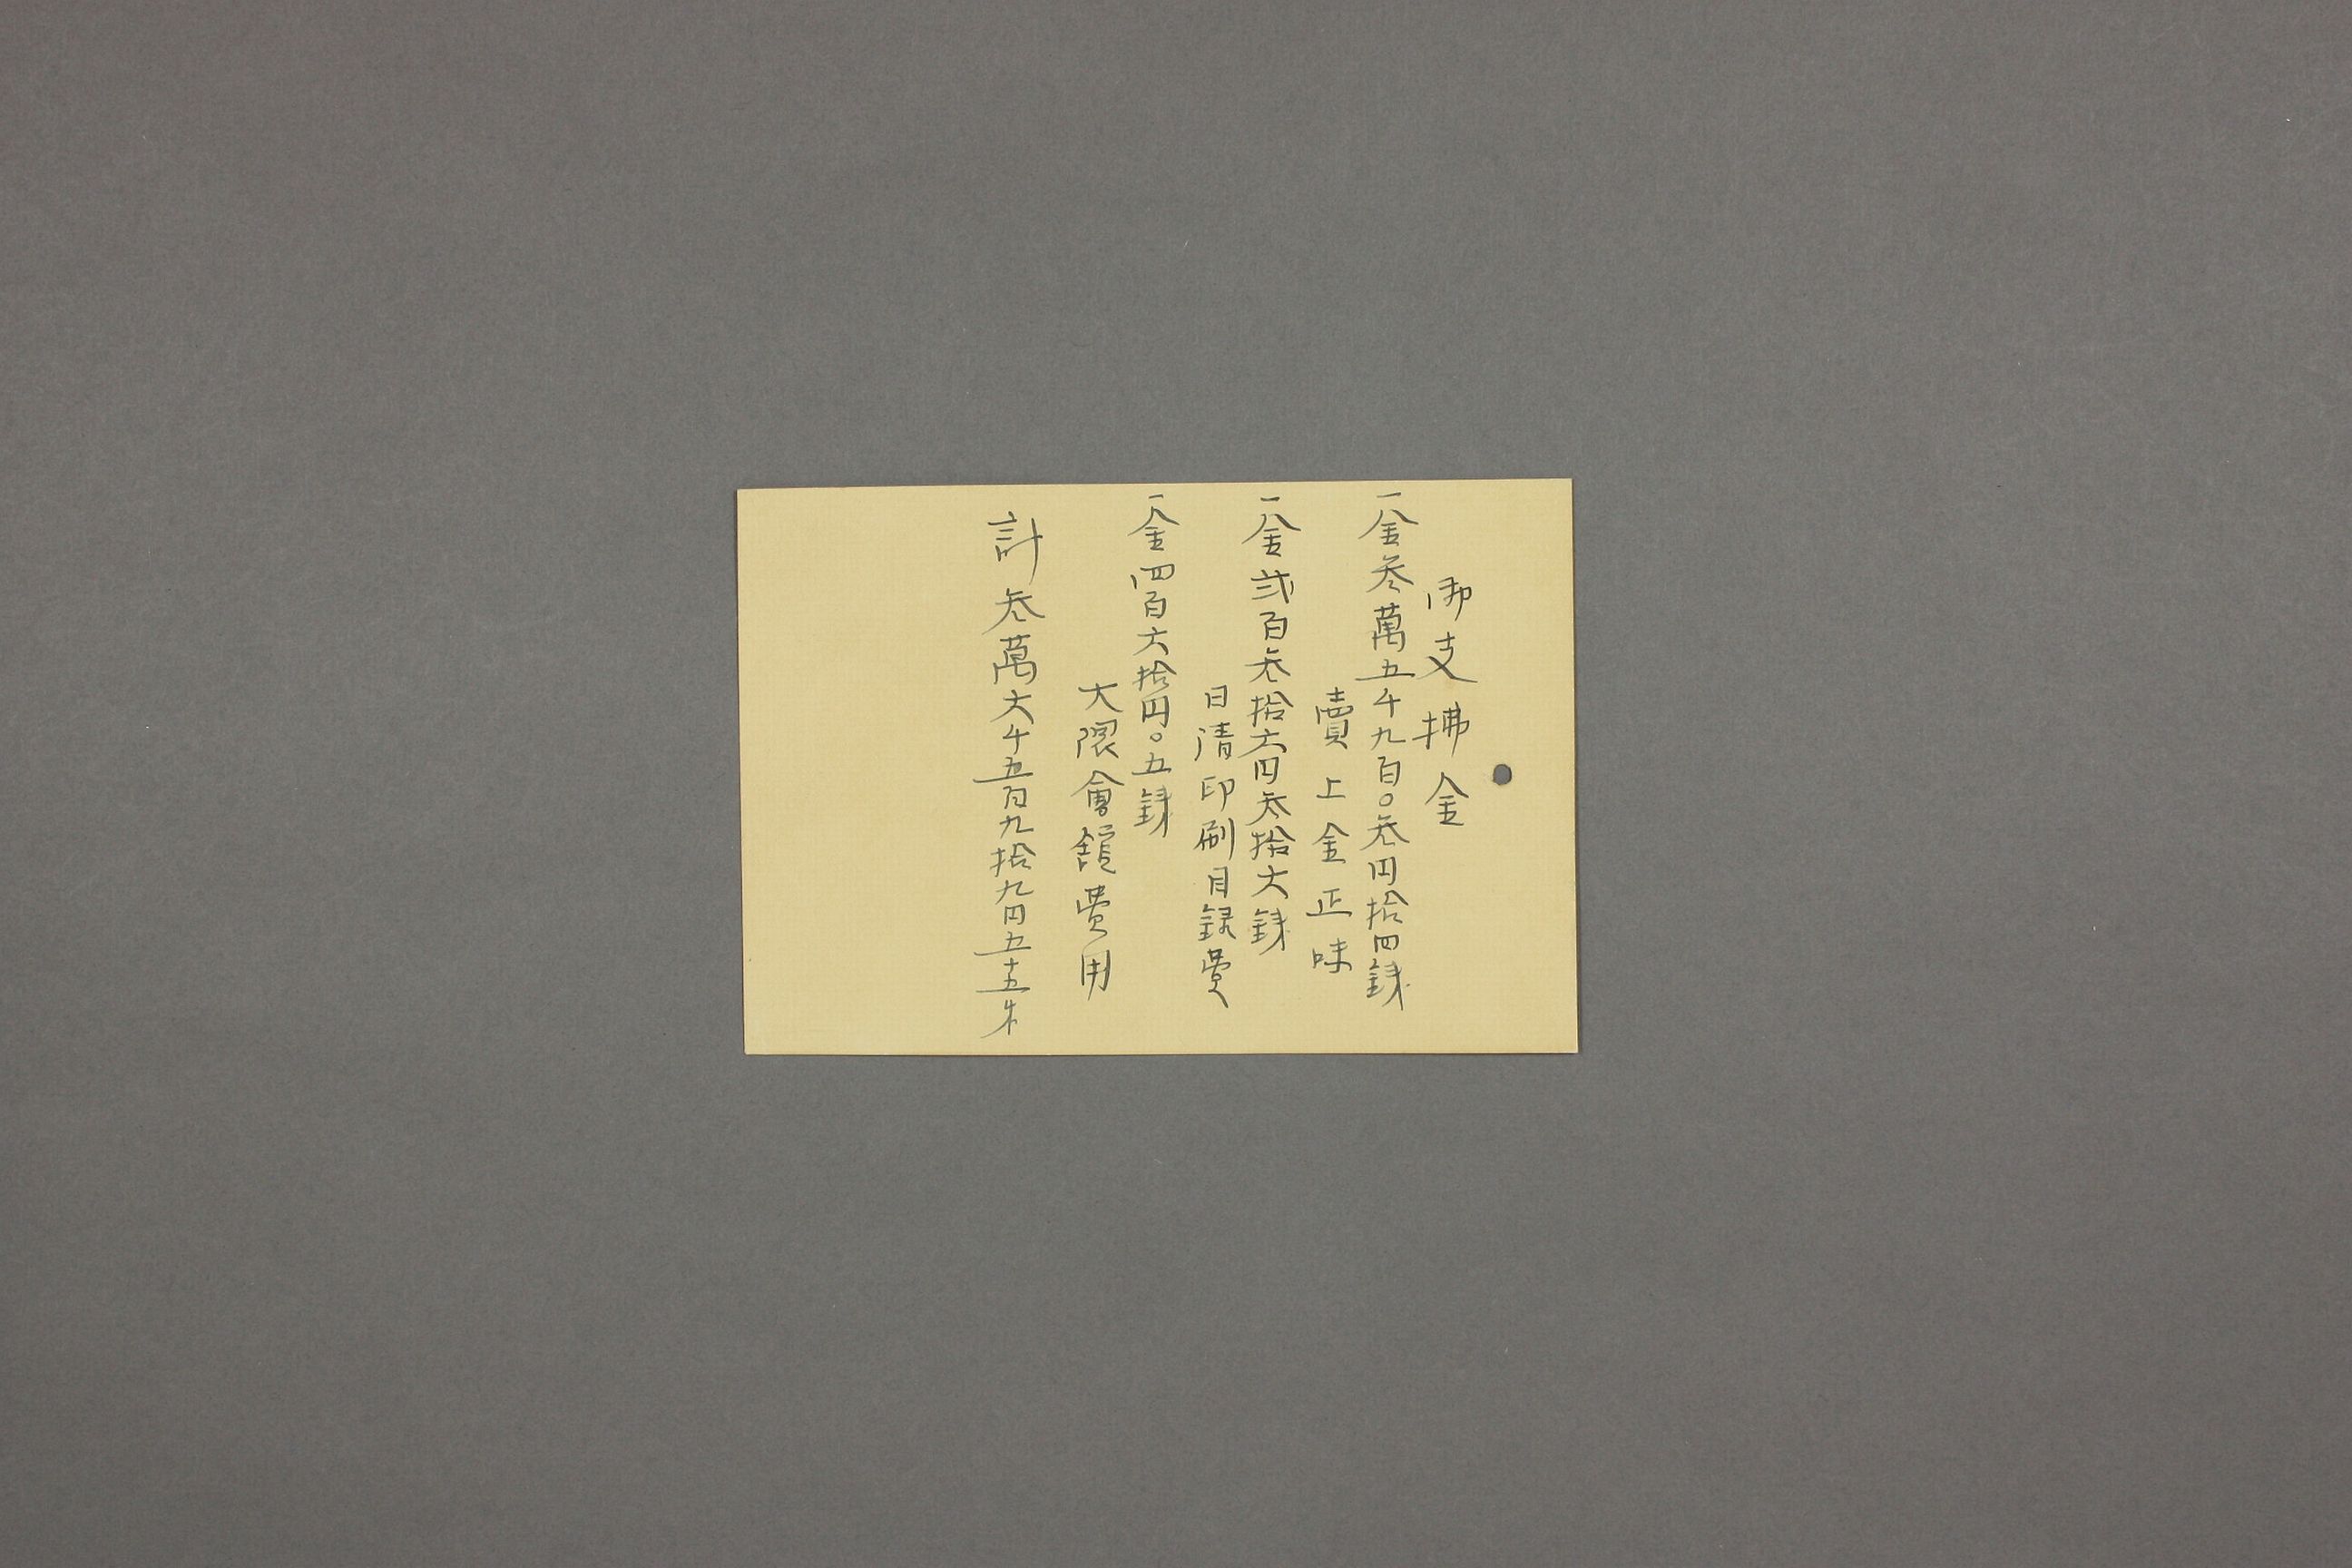 御支拂金
一金参萬五千九百〇参円拾四銭
賣上金正味
一金弐百参拾六円参拾六銭
日清印刷目録費
一金四百六拾円〇五銭
大隈會館費用
計参萬六千五百九拾九円五十五銭